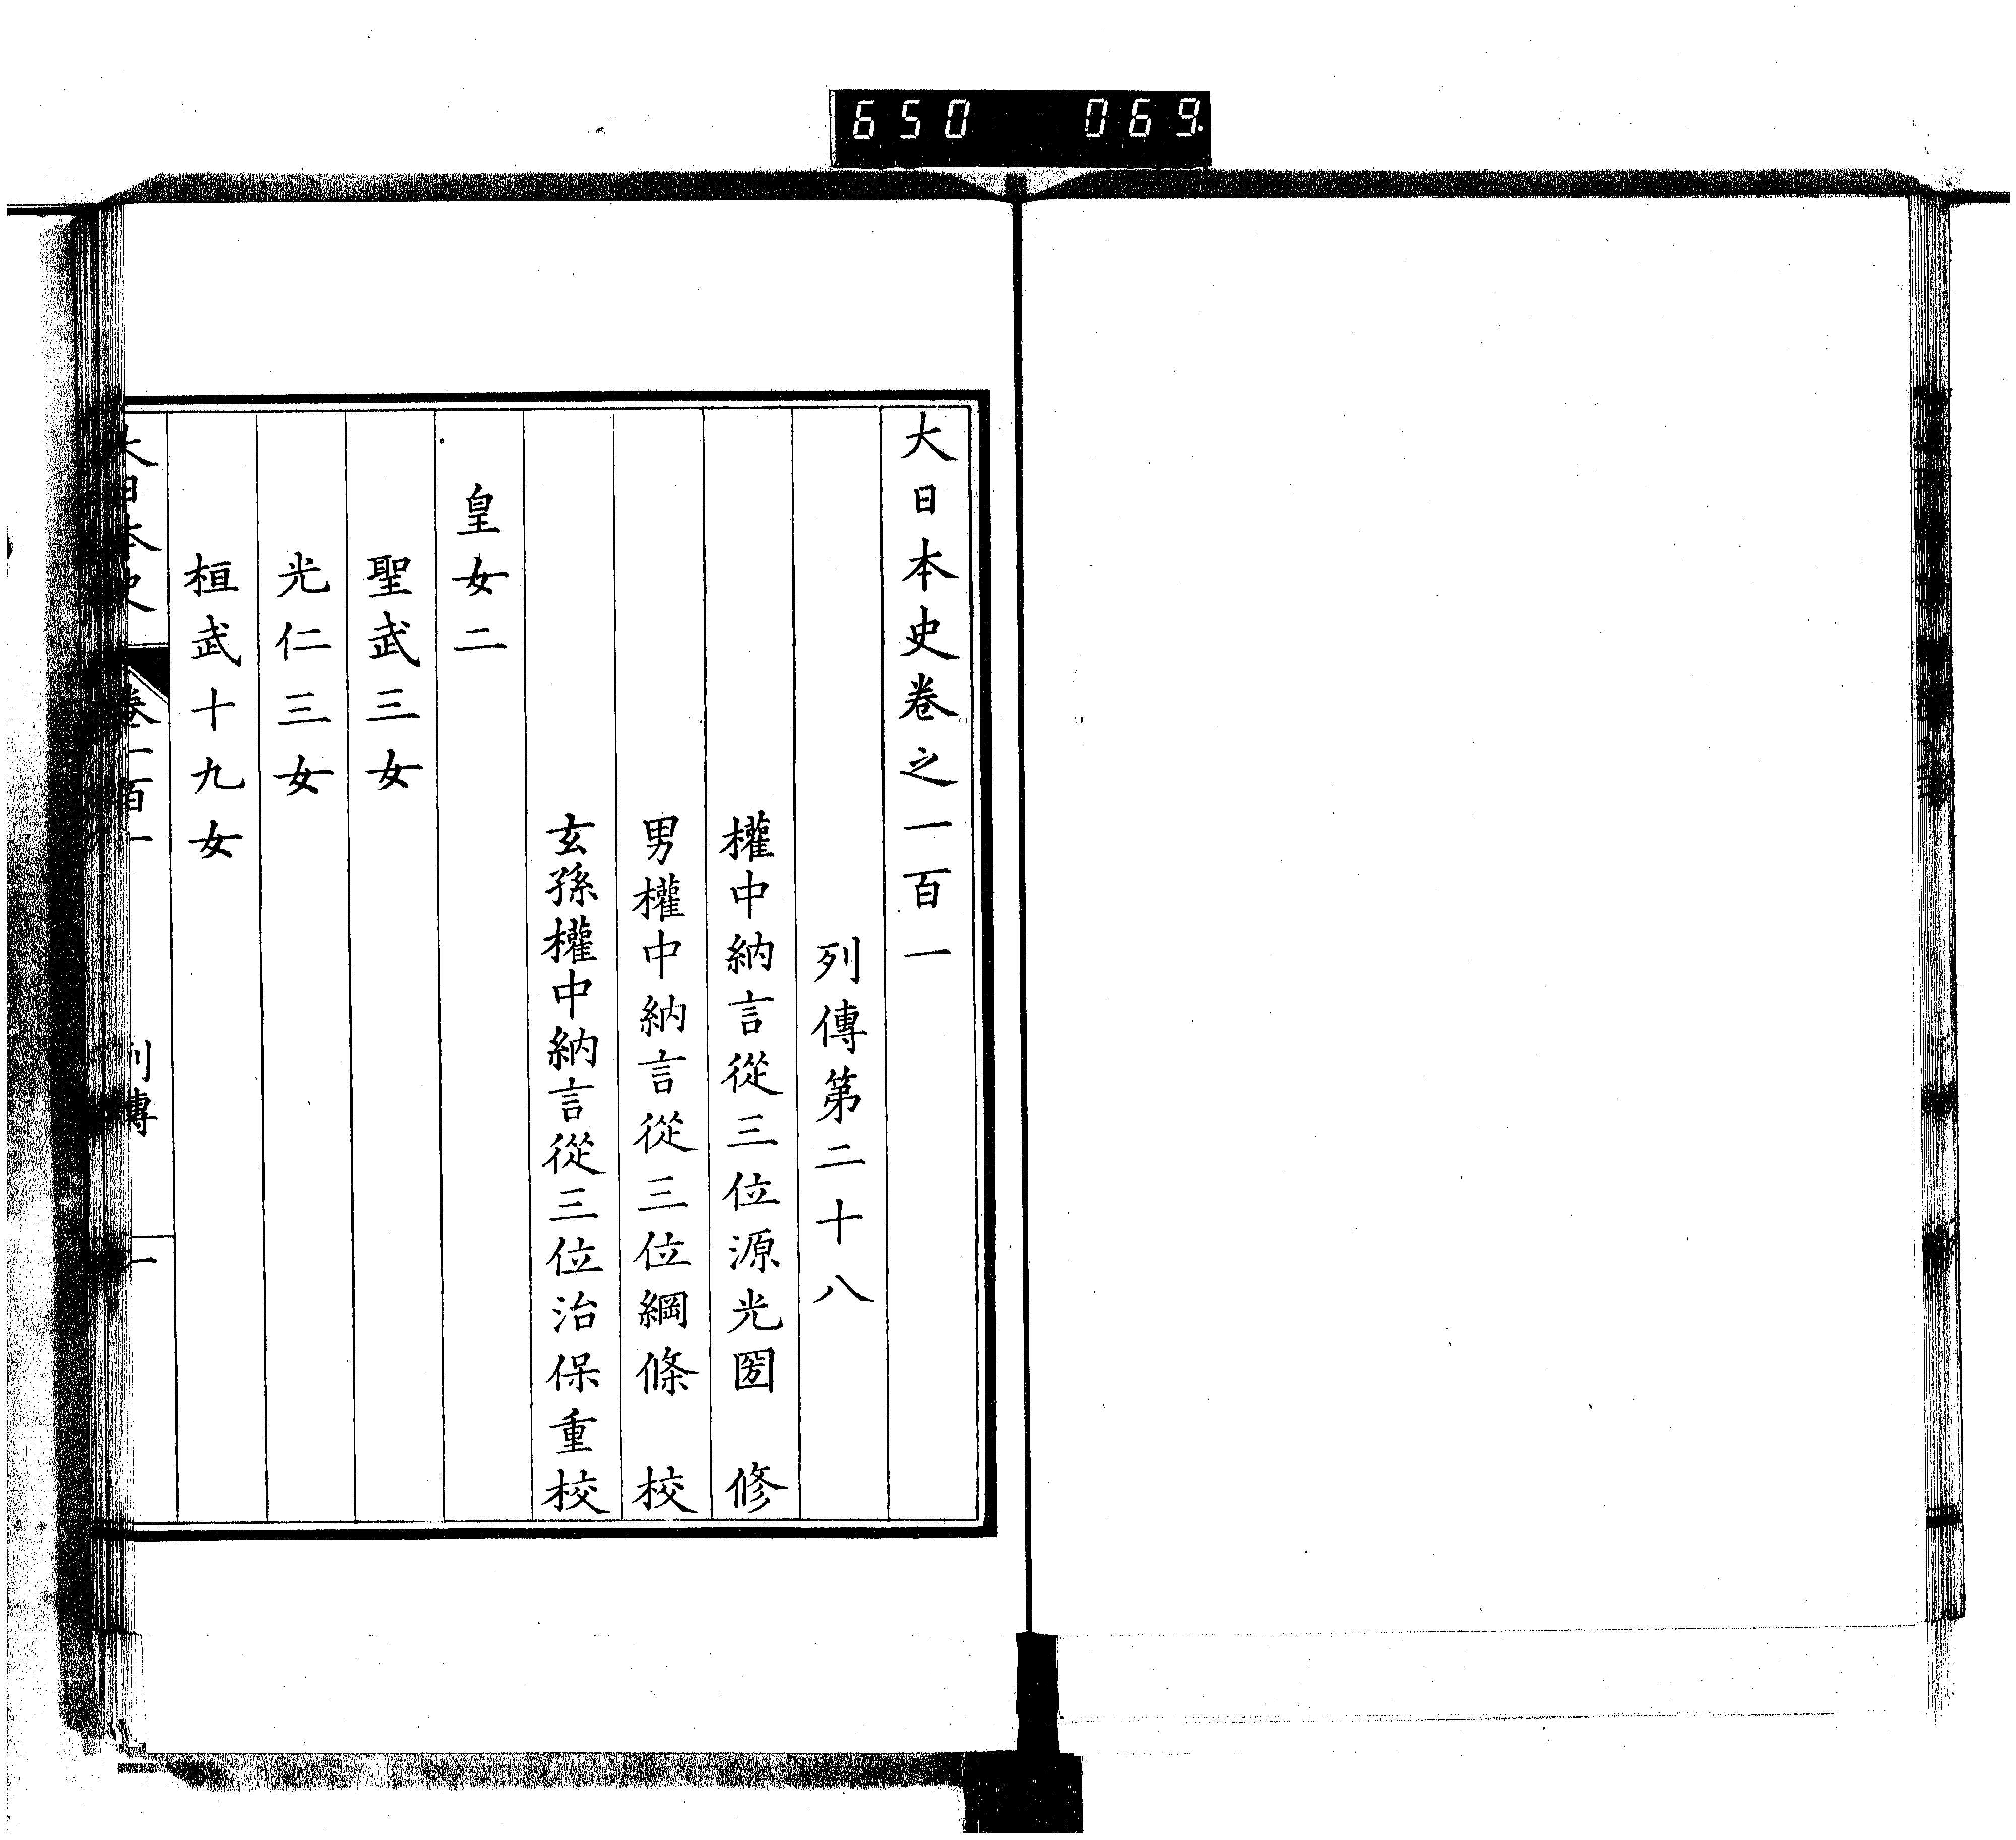 650 069
大日本史卷之一百一
列傳第二十八
權中納言從三位源光圀 修
男權中納言從三位綱條 校
玄孫權中納言從三位治保重校
皇女二
聖武三女
光仁三女
桓武十九女
大日本史 卷一百一 列傳 一